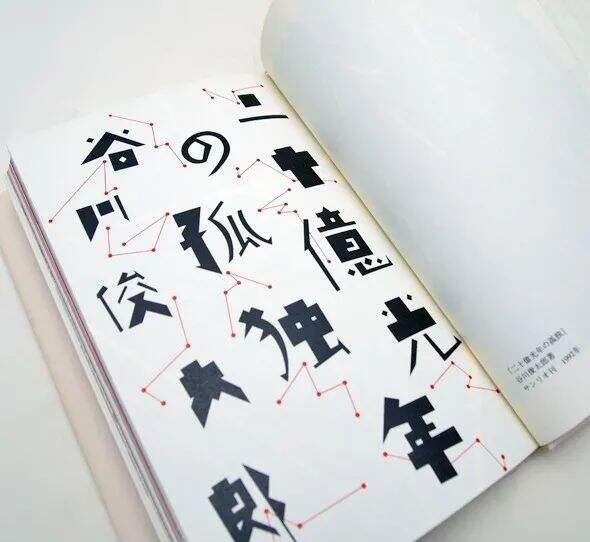 二十億光年
の孤独
谷川俊太郎
『二十億光年の孤独』
谷川俊太郎著
サンリオ刊 1992年